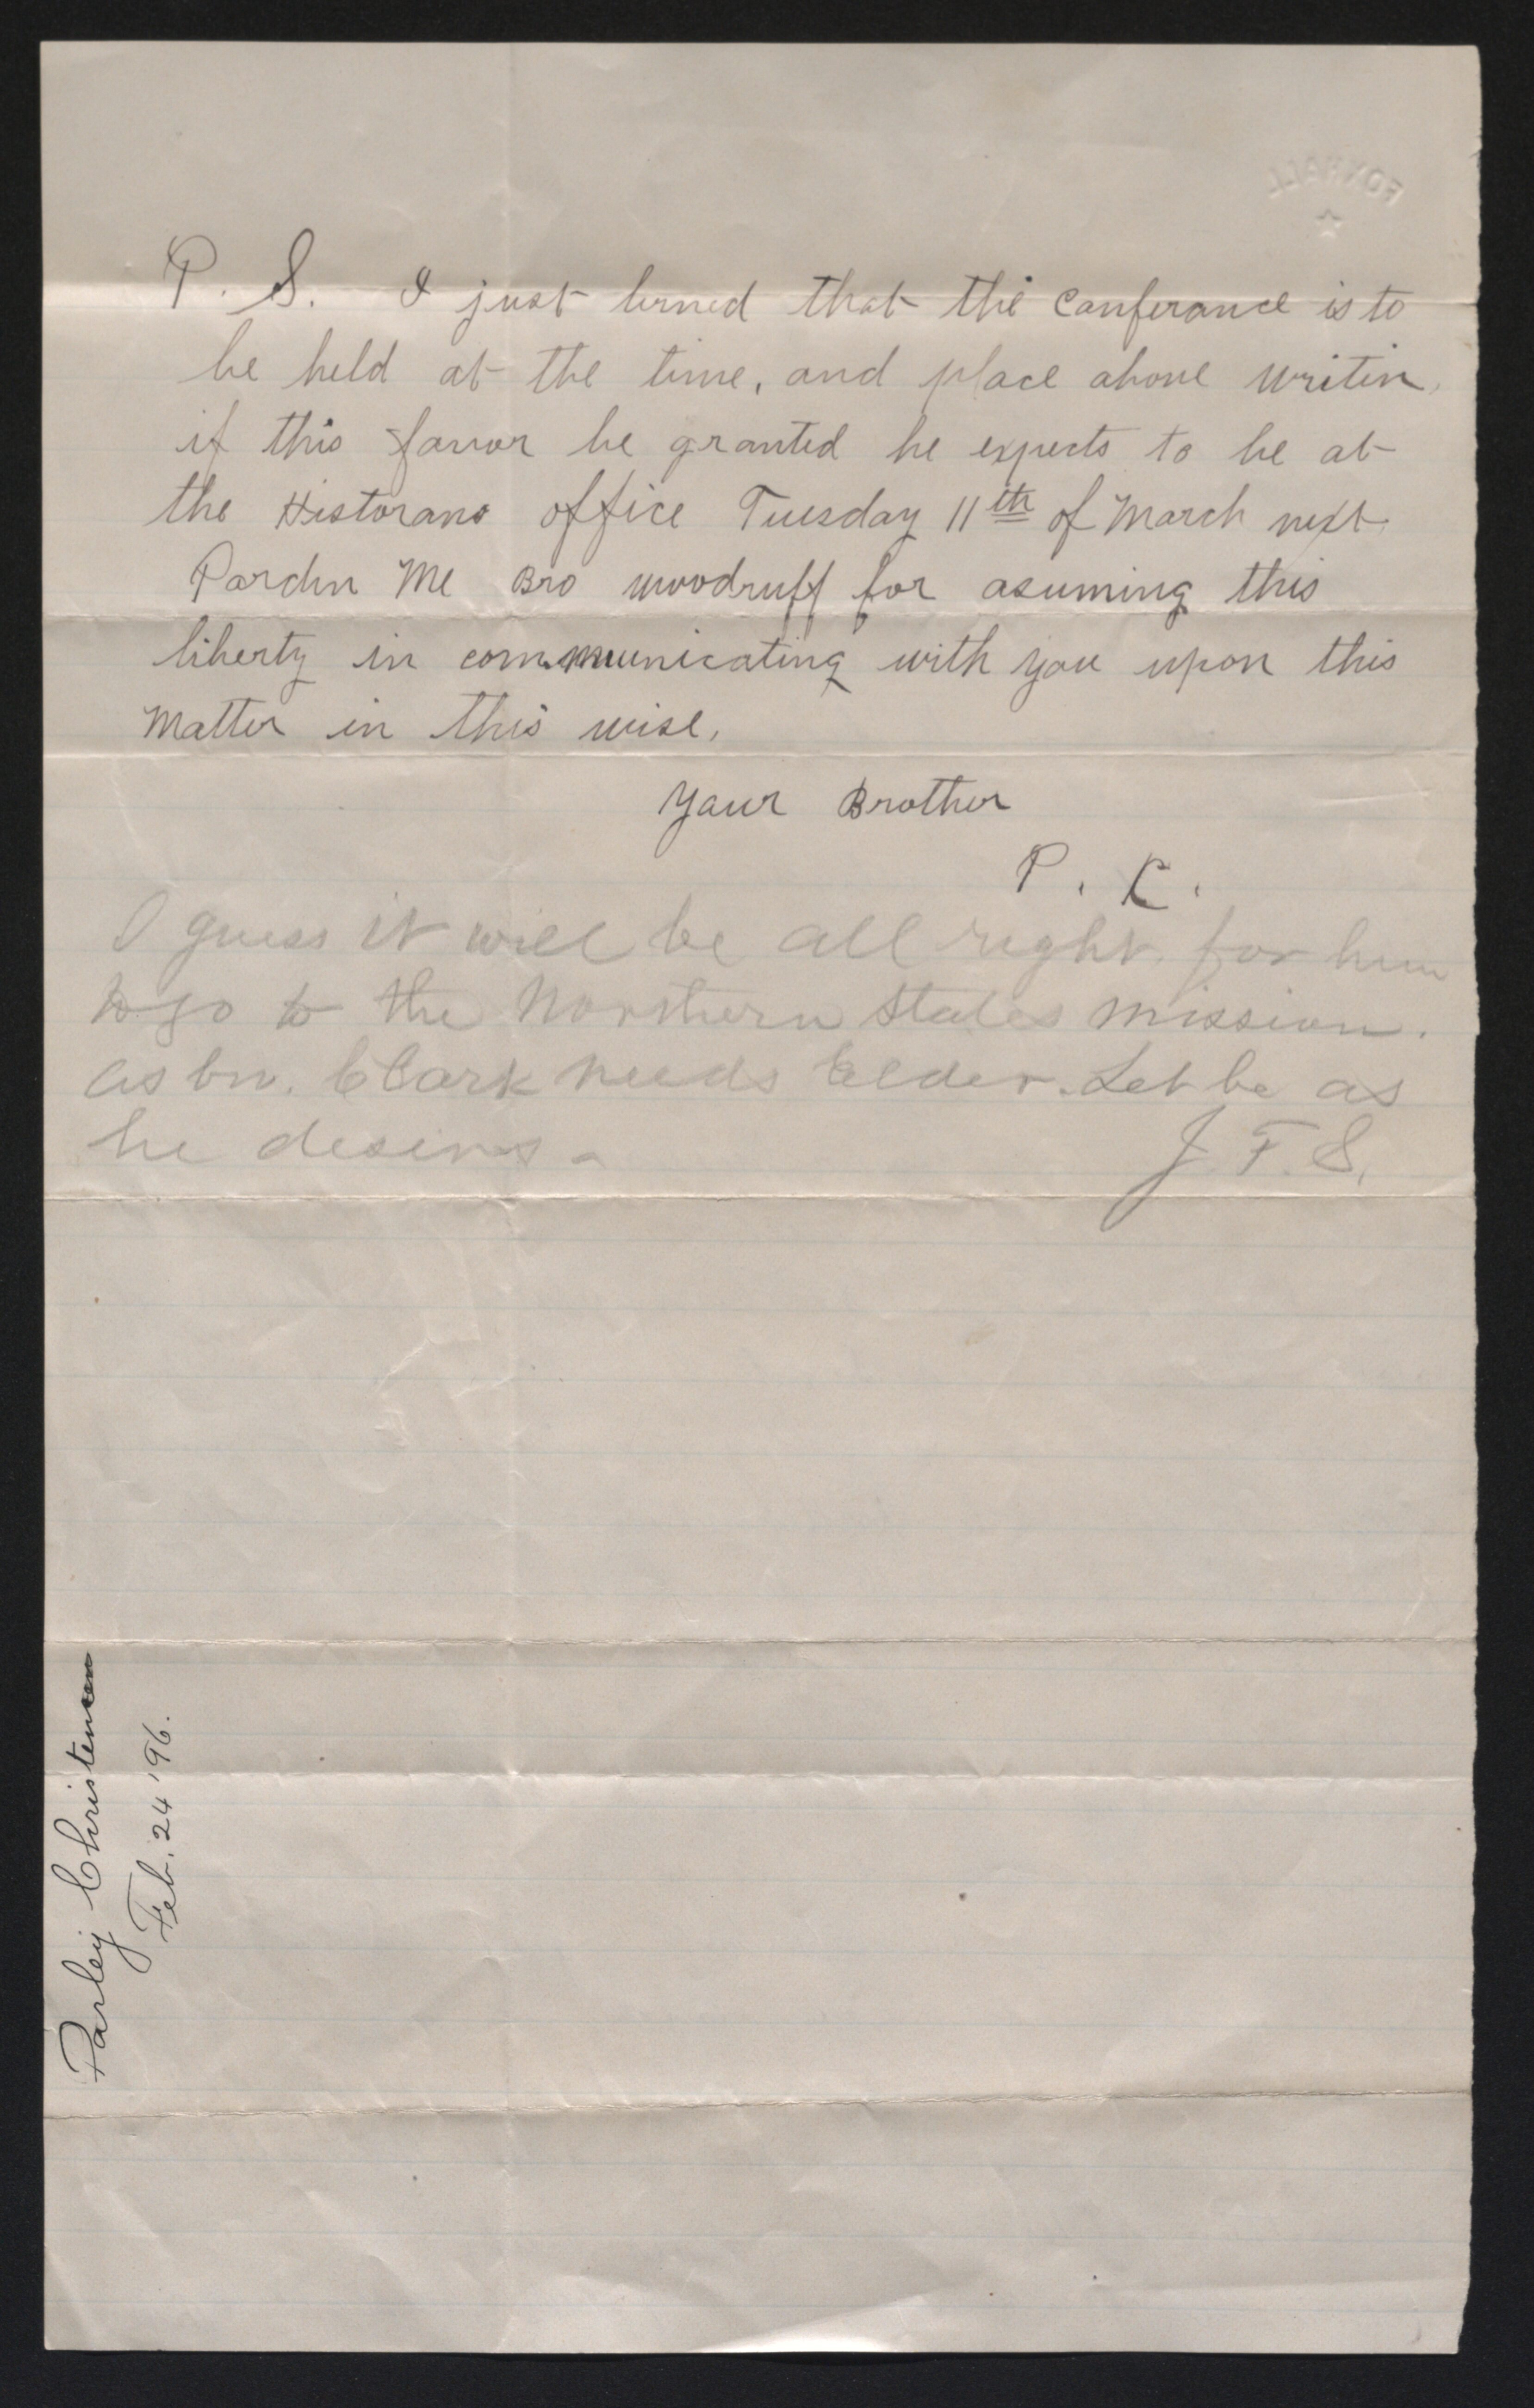 P. S. I just lerned that the Conferance is to
be held at the time, and place above writin,
if this favor be granted he expects to be at
the Historans office Tuesday 11th of March next.
Pardin Me Bro woodruff for asuming this
liberty in communicating with you upon this
Matter in this wise,
Your Brother
P. C.
I guess it will be all right for him
to go to the Northern States Mission.
as bro. Clark needs Elder. Let be as
he desires.
J. F. S.
Parley Christensen
Feb. 24 '96.
FOXHALL